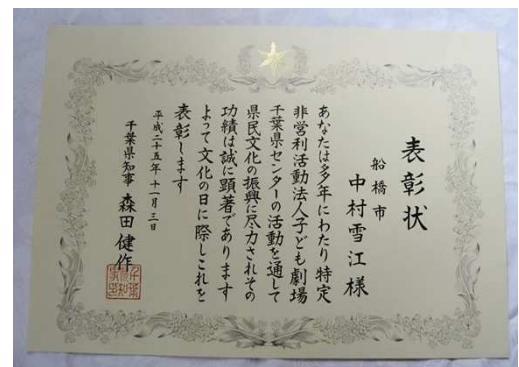 表彰状
船橋市
中村雪江様
あなたは多年にわたり特定
非営利活動法人子ども劇場
千葉県センターの活動を通して
県民文化の振興に尽力されその
功績は誠に顕著であります
よって文化の日に際しこれを
表彰します
平成二十五年十一月三日
千葉県知事 森田健作